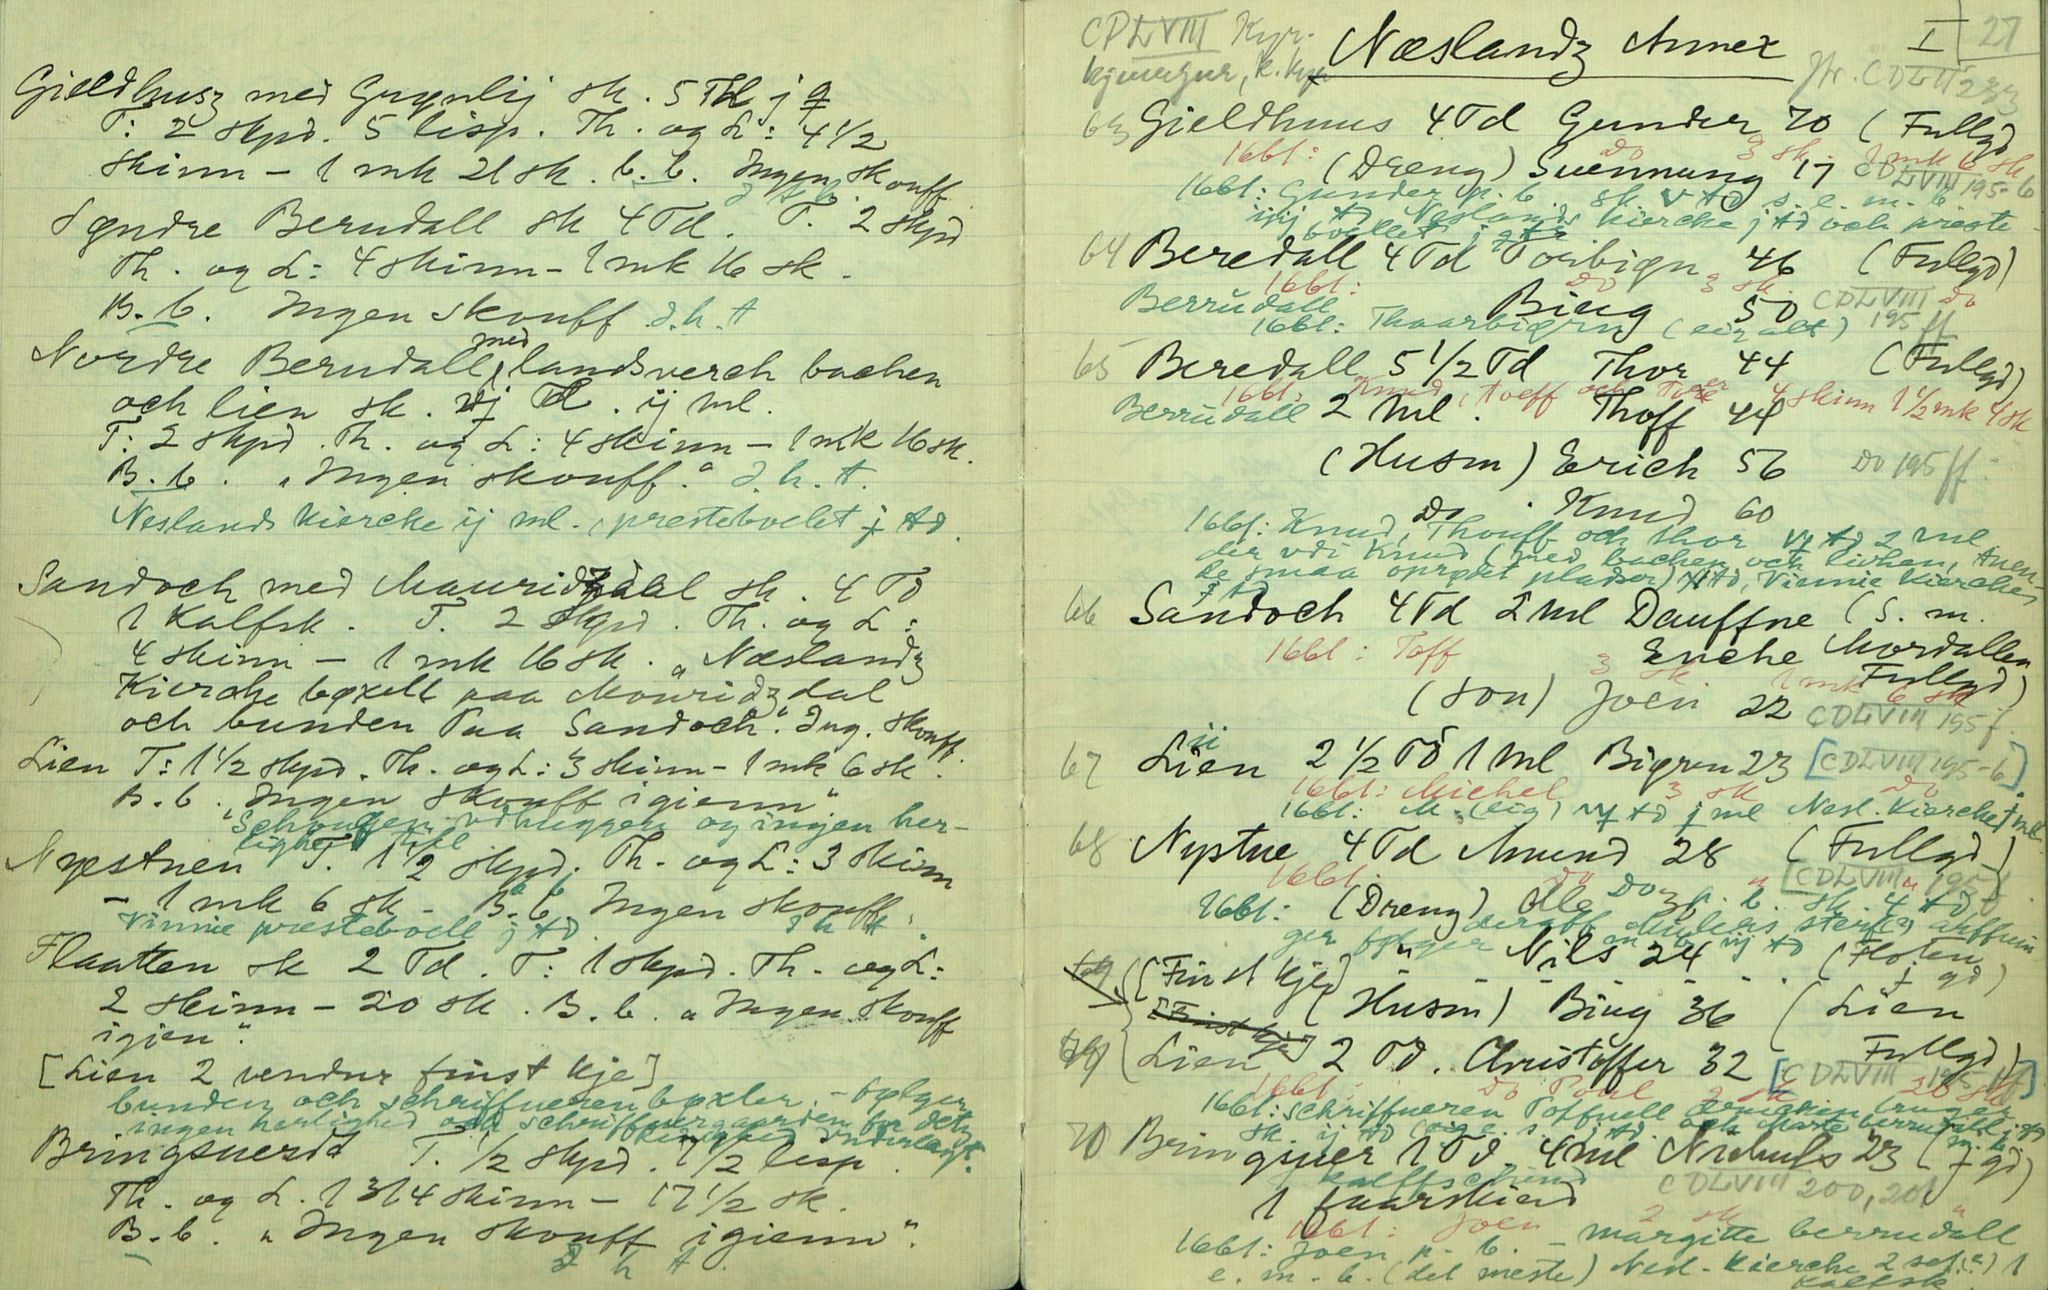 Gieldhusz med Grynlij sk. 5 Td j q
T: 2 skpd. 5 lisp. Th. og L: 4 1/2
skinn - 1 mk 21 sk. b. b. Ingen skouff
d. h. t.
Syndre Berudall sk 4 Td. T. 2 skpd
Th. og L: 4 skinn - 1 mk 16 sk.
B. b. Ingen skouff d. h. t
Nordre Berudall med landsverch bachen
och lien sk. vj Td. ij ml.
T: 2 skpd. Th. og L: 4 skinn - 1 mk 16 sk.
B. b. "Ingen skouff." d. h. t.
Neslands Kiercke ij ml., presteboelet j td.
Sandoch med Mauridzdal sk. 4 Td
1 Kalfsk. T. 2 skpd. Th. og L:
4 skinn - 1 mk 16 sk. "Næslandz
Kierche bøxell paa Mouridzdal
och bunden paa Sandoch". Ing. skouff.
Lien T: 1 1/2 skpd. Th. og L: 3 skinn - 1 mk 6 sk.
B. b. "Ingen skouff igienn"
"Schougen udhuggen og ingen her-
lighed till
Nyestuen T. 1 1/2 skpd. Th. og L: 3 skinn
- 1 mk 6 sk - B. b. Ingen skouff.
Vinnie presteboell j td. d h t
Flaatten sk 2 Td. T: 1 skpd. Th. og L:
2 skinn - 20 sk. B. b. "Ingen skouff
igien".
[Lien 2 vendur finst kje]
bunden och schriffueren bøxler. - følger
ingen herlighed
Bringsuerd T. 1/2 skpd. 7 1/2 lisp.
Th. og L. 1 3/4 skinn - 17 1/2 sk.
B. b. "Ingen skouff igienn".
d h t.
CDLVIII Kyr.
Næslandz Annex I 27
Jfr. CDLII 233
63 Gieldhuus 4 Td Gunder 70 (Fullgd
1661: Do 3 sk. 1 mk 6 sk
(Dreng) Suennung 17 CDLVIII 195-6
1661: Gunder p. b. sk v td s. e. m. b.
iiij td Neslands Kiercke j td och preste
boellet j
64 Beredall 4 Td Torbiørn 46 (Fullgd)
1661: Do 3 sk. Do
Berrudall Biug 50 CDLVIII 195 ff
1661: Thaarbiørn (eig alt)
65 Beredall 5 1/2 Td Thor 44 (Fullgd)
1661: Knud, toeff och Tore 4 skinn 1 1/2 mk 4 sk
Berrudall 2 ml. Thoff 44
(Husm) Erich 56 Do 195 ff.
Do. Knud 60
1661: Knud, Thouff och thor vj td 2 ml
der udi Knud (med bachen och liehen, tuen-
de smaa opryet pladser) Vinnie Kierche
j td
66 Sandoch 4 Td 2 ml Dauffne (S. m.
1661: Toff 3 sk 1 mk 6 sk
Enche Mordallen
Fullgd)
(søn) Joen 22 CDLVIII 195 f.
67 Lien 2 1/2 Td 1 ml Biørn 23 [CDLVIII 195-6]
1661: Michel 3 sk Do
1661: M. (eig) td j ml Nesl. Kierche j ml.
68 Nystue 4 Td Amund 28 (Fullgd)
1661: Do [CDLVIII 195 f
1661: (Dreng) Ole p. b. sk. 4 td
Nils 24 (Floten
1 gd)
69 {[Finst kje] (Husm) Biug 36 (Lien
Fullgd)
[Finst kje]
69 {Lien 2 Td. Christoffer 32 [CDLVIII 195 ff]
1661: Do Poul 2 sk 20 sk
1661: schriffueren Toffuell
70 Bringuer 1 Td 4 ml Niehuls 23 (1 gd)
kalffschind CDLVIII 200, 201
1 faarskind
1661: Joen 2 sk "
1661: Joen p. b. - margitte berrudall
e. m. b. (det meste) Nesl. Kierche 2 set.(?) 1
kalfsk.